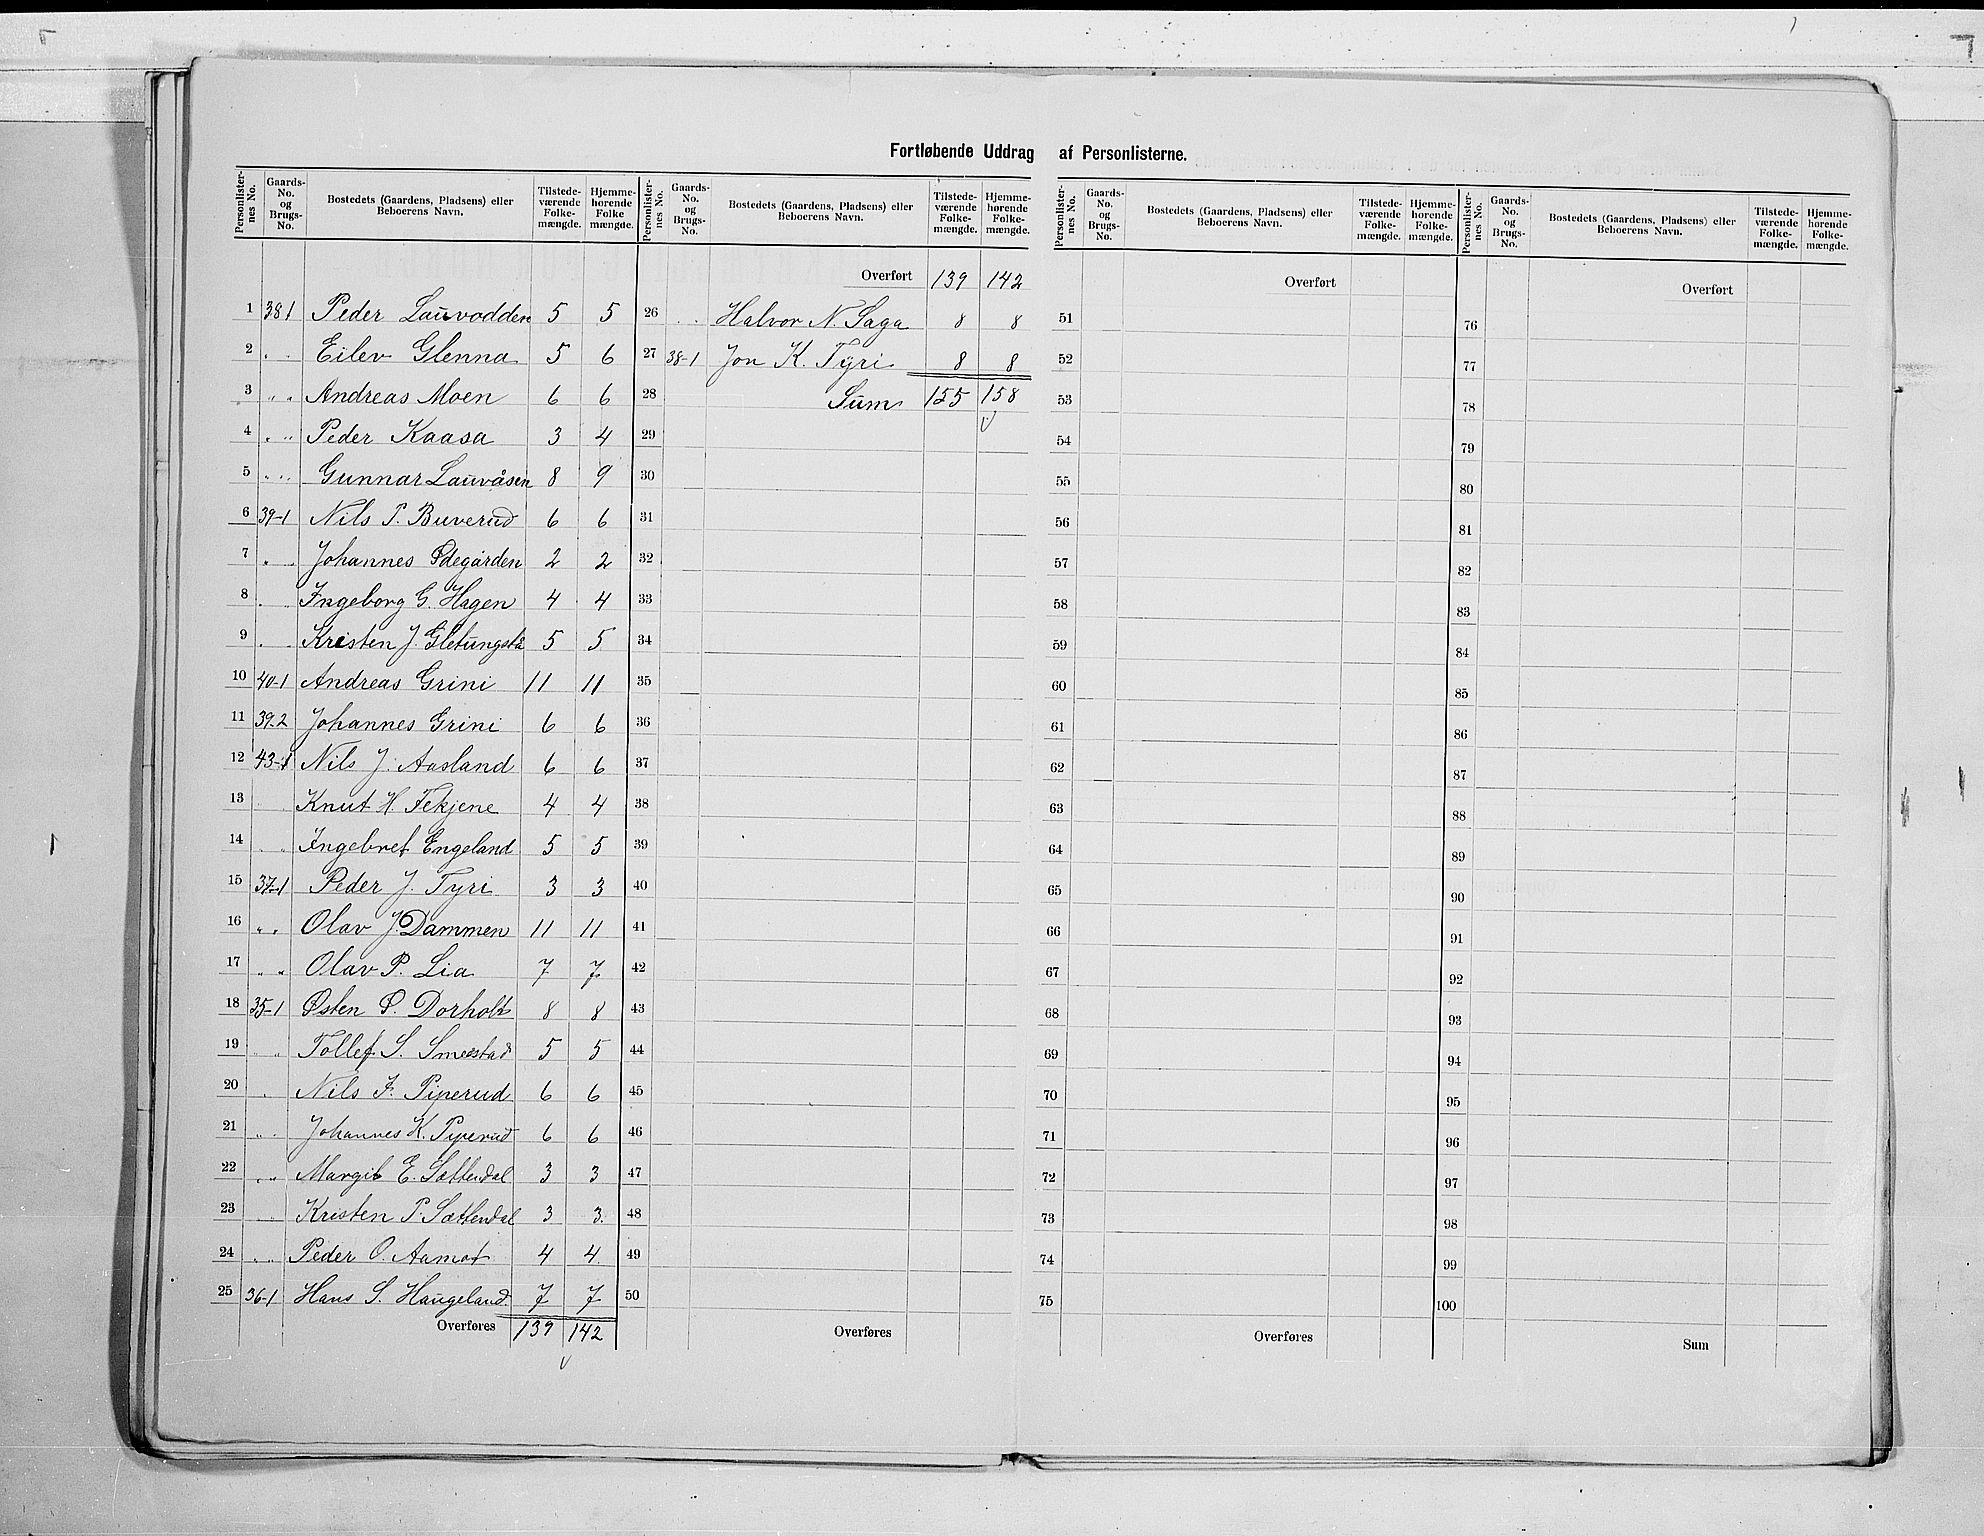 Fortløbende Uddrag af Personlisterne.
Personlister-nes No. Gaards-No. og Brugs-No. Bostedets (Gaardens, Pladsens) eller Beboerens Navn. Tilstede-værende Folke-mængde. Hjemme-hørende Folke mængde.
1 38 1 Peder Lauvodden 5 5
2 „ „ Eilev Glenna 5 6
3 „ „ Andreas Moen 6 6
4 „ „ Peder Kaasa 3 4
5 „ „ Gunnar Lauvåsen 8 9
6 39-1 Nils P. Buverud 6 6
7 „ „ Johannes Ødegården 2 2
8 „ „ Ingeborg G. Hagen 4 4
9 „ „ Kristen J. 5 5
10 40-1 Andreas Grini 11 11
11 39-2 Johannes Grini 6 6
12 43-1 Nils J. Aasland 6 6
13 Knut H. Fekjene 4 4
14 „ „ Ingebret Engeland 5 5
15 37-1 Peder J. Tyri 3 3
16 „ „ Olav J. Dammen 11 11
17 „ „ Olav P. Lia 7 7
18 35-1 Østen Ø. Dorholt 8 8
19 „ „ Tollef S. Smestad 5 5
20 „ Nils F. Piperud 6 6
21 „ „ Johannes K. Piperud 6 6
22 „ „ Margit E. Sættendal 3 3
23 „ Kristen P. Sættendal 3 3
24 „ „ Peder O. Aamot 4 4
25 36-1 Hans S. Haugeland 7 7
Overføres 139 142
Personlister-nes No. Gaards-No. og Brugs-No. Bostedets (Gaardens, Pladsens) eller Beboerens Navn. Tilstede-værende Folke-mængde. Hjemme-hørende Folke-mængde.
Overført 139 142
26 „ „ Halvor N. Saga 8 8
27 38-1 Jon K. Tyri 8 8
28 Sum 155 158
29
30
31
32
33
34
35
36
37
38
39
40
41
42
43
44
45
46
47
48
49
50
Overføres
Personlister-nes No. Gaards-No. og Brugs-No. Bostedets (Gaardens, Pladsens) eller Beboerens Navn. Tilstede-værende Folke-mængde. Hjemme-hørende Folke-mængde.
Overført
51
52
53
54
55
56
57
58
59
60
61
62
63
64
65
66
67
68
69
70
71
72
73
74
75
Overføres
Personlister-nes No. Gaards-No. og Brugs-No. Bostedets (Gaardens, Pladsens) eller Beboerens Navn. Tilstede-værende Folke-mængde. Hjemme-hørende Folke-mængde.
Overført
76
77
78
79
80
81
82
83
84
85
86
87
88
89
90
91
92
93
94
95
96
97
98
99
100
Sum